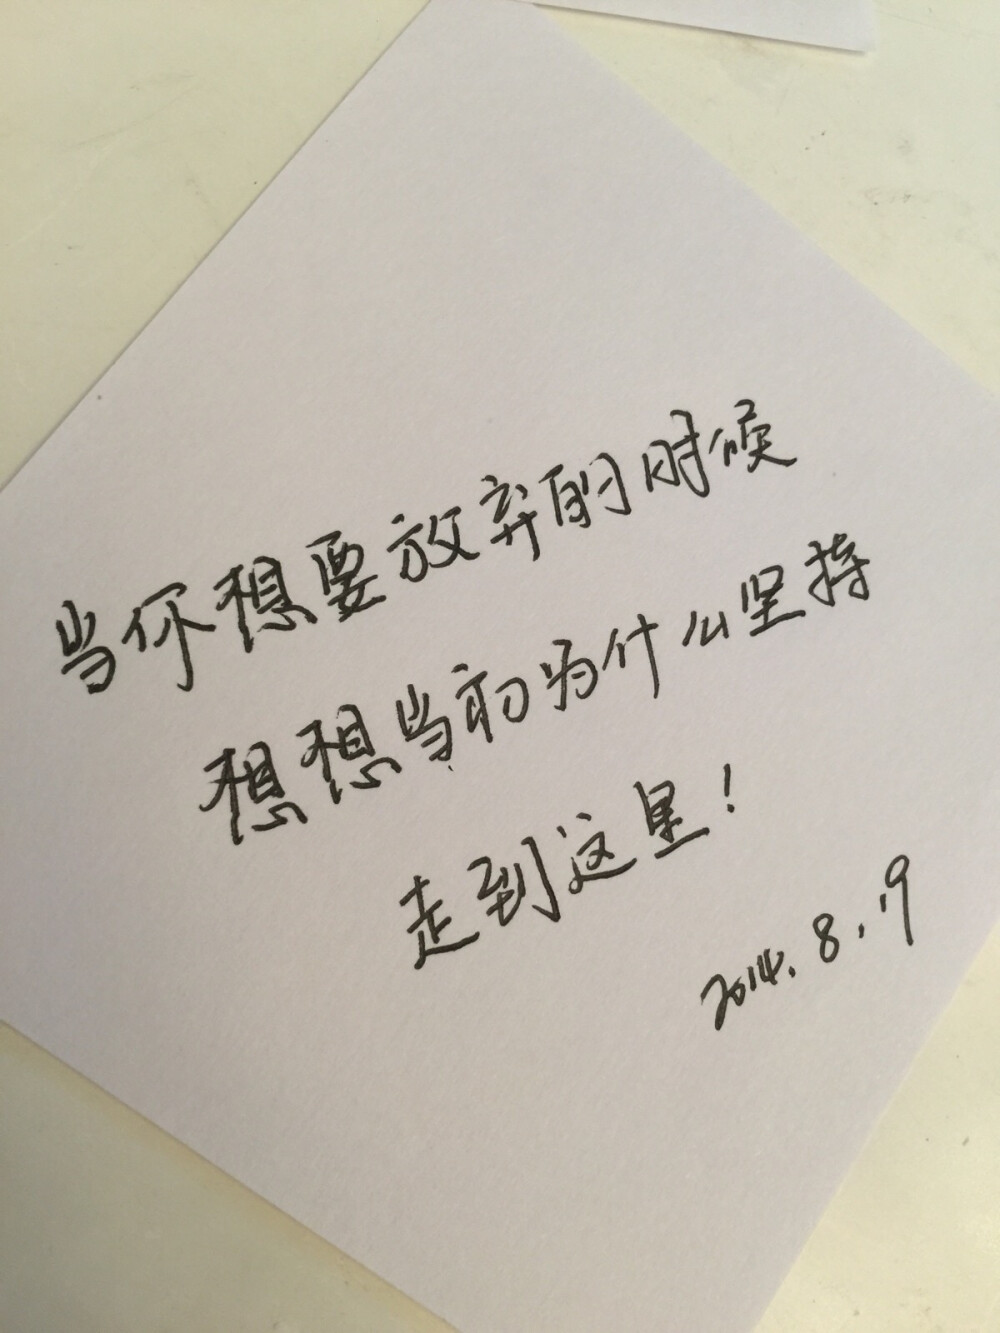 当你想要放弃的时候
想想当初为什么坚持
走到这里！
2014.8.19